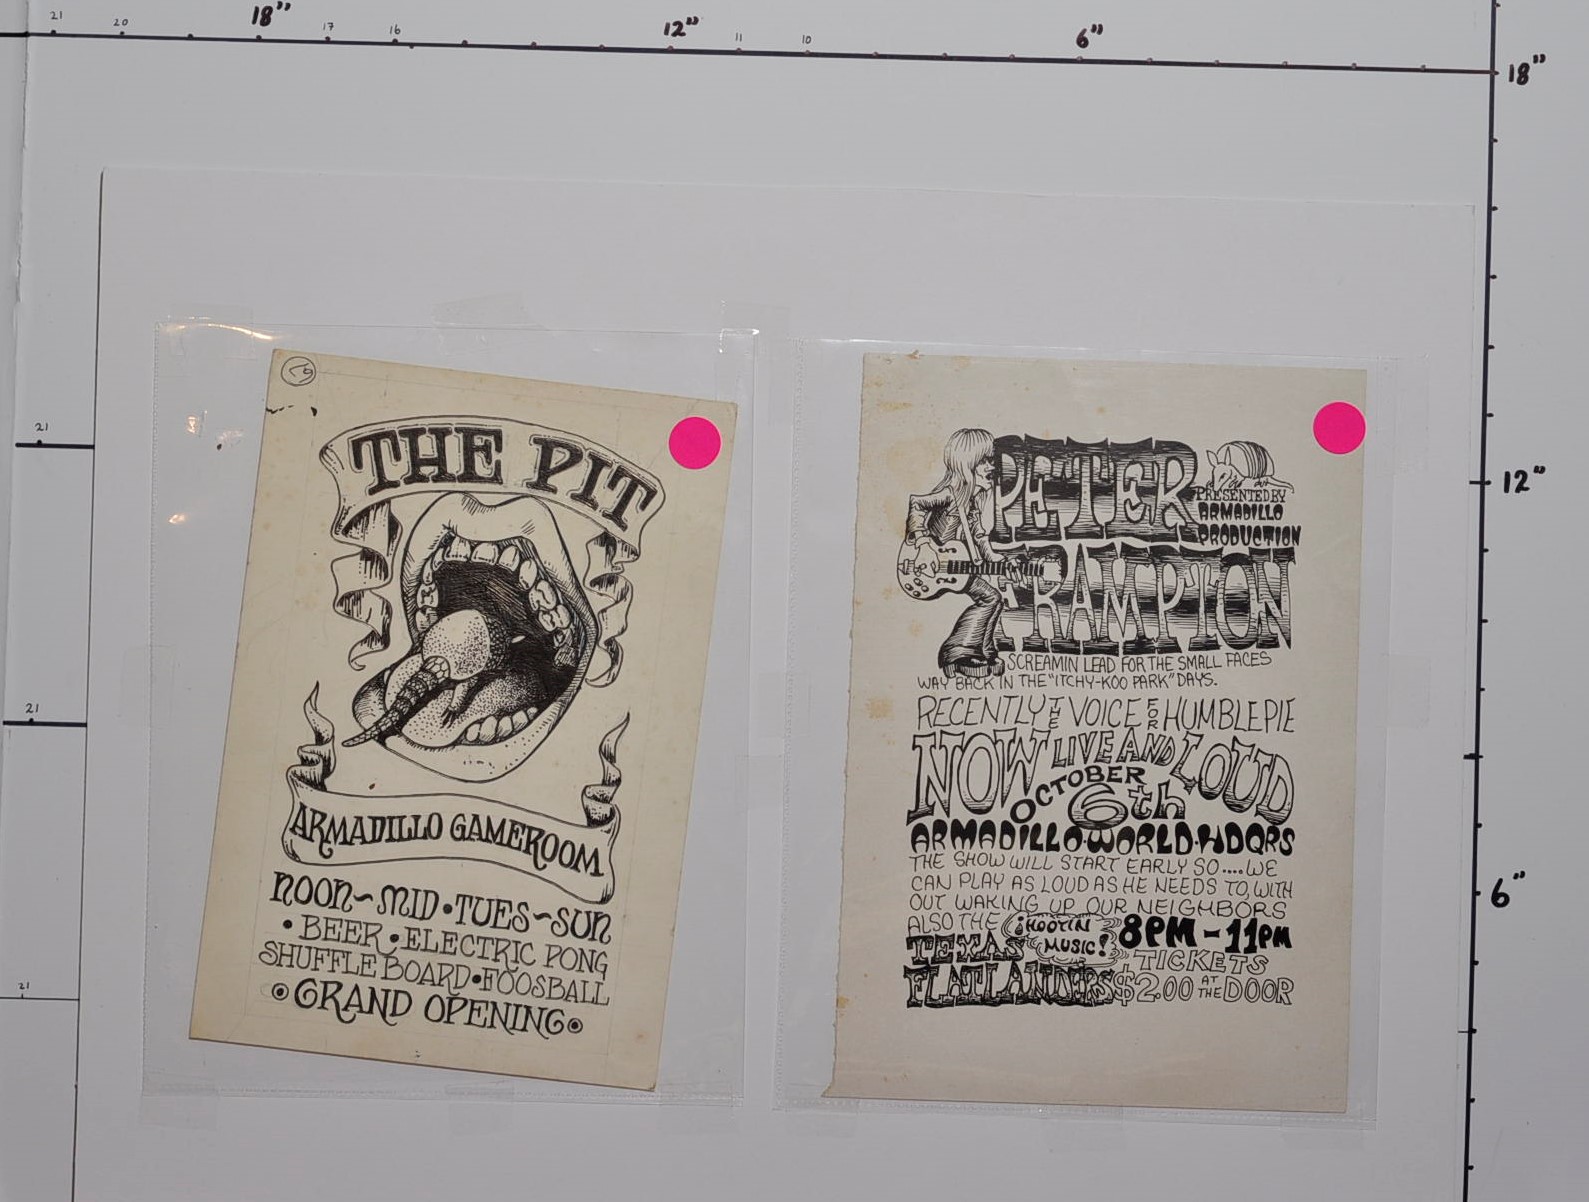 21
20
18"
17
16
12"
11
10
6"
18"
12"
6"
21
21
21
THE PIT
ARMADILLO GAMEROOM
NOON~MID•TUES~SUN
•BEER•ELECTRIC PONG
SHUFFLE BOARD•FOOSBALL
GRAND OPENING
PETER
PRESENTED BY
ARMADILLO
PRODUCTION
FRAMPTON
SCREAMIN LEAD FOR THE SMALL FACES
WAY BACK IN THE "ITCHY-KOO PARK" DAYS.
RECENTLY THE VOICE FOR HUMBLE PIE
NOW LIVE AND LOUD
OCTOBER
6th
ARMADILLO•WORLD•HDQRS
THE SHOW WILL START EARLY SO....WE
CAN PLAY AS LOUD AS HE NEEDS TO, WITH
OUT WAKING UP OUR NEIGHBORS
ALSO THE ¡HOOTIN MUSIC! 8PM-11PM
TEXAS
FLATLANDERS
TICKETS
$2.00 AT THE DOOR